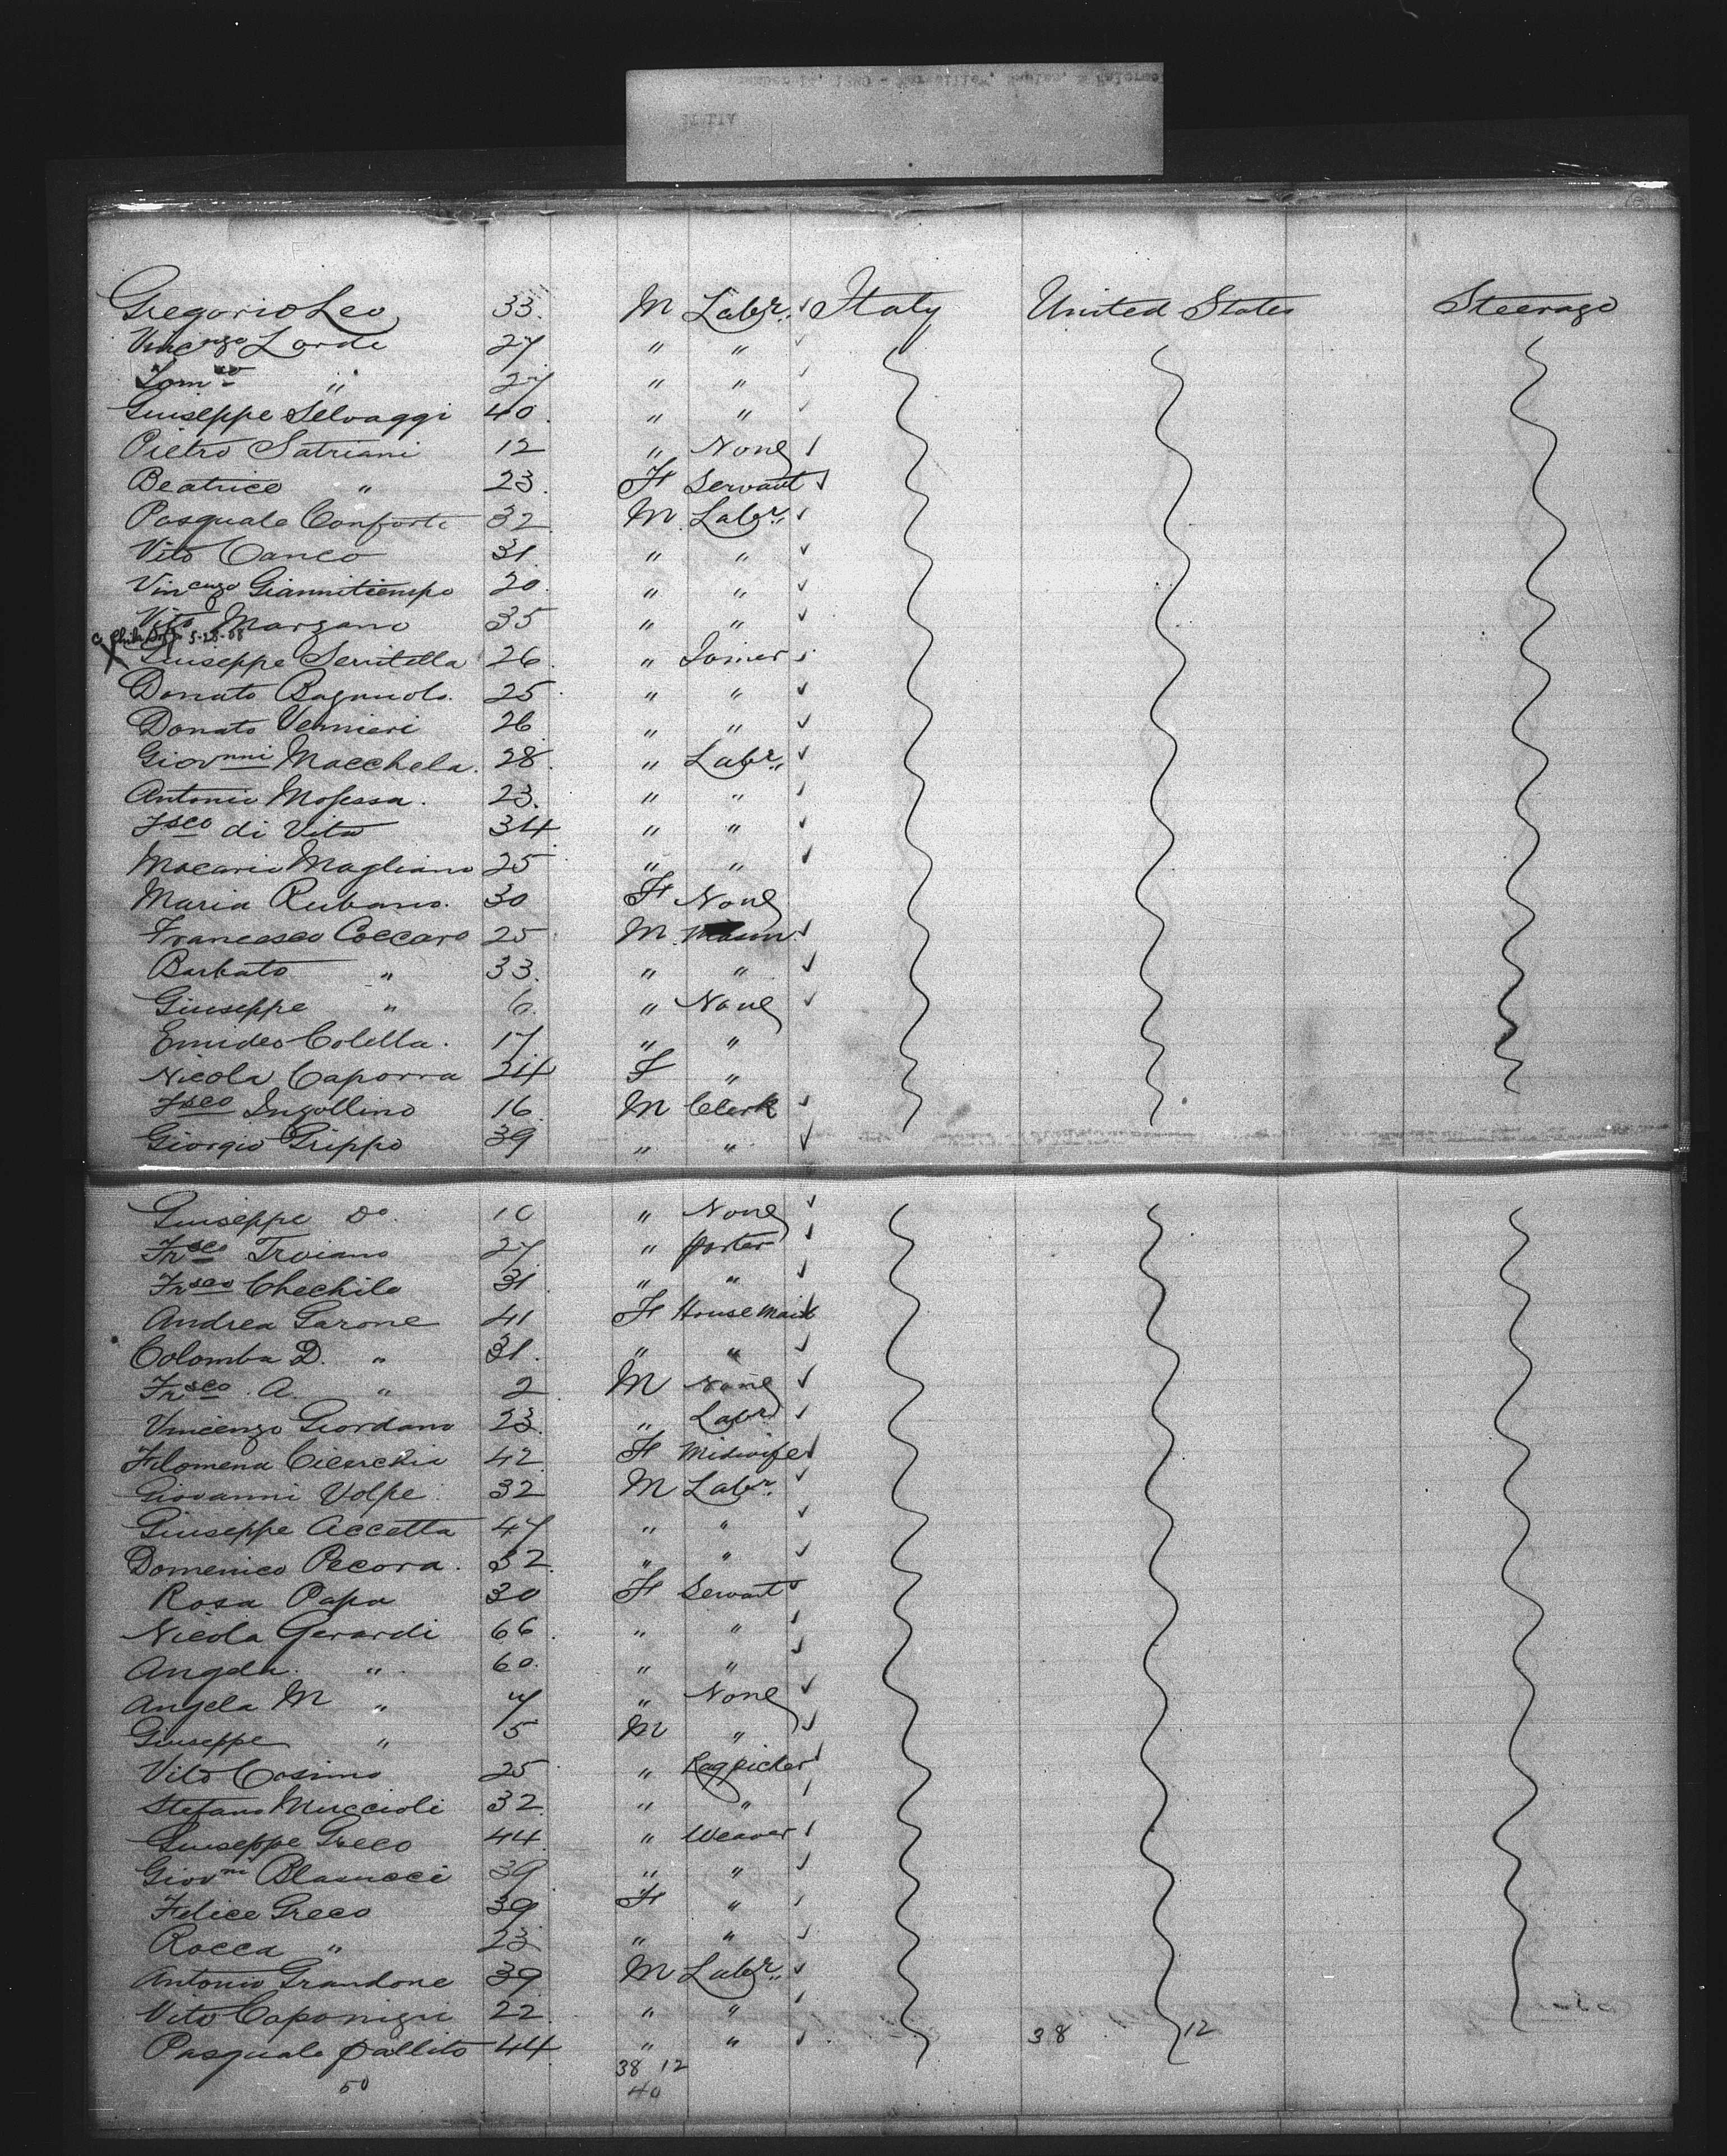 Gregorio Leo 33 M Labr. Italy United States Steerage
Vincnzo Lordi 27 " "
" 27 " "
Giuseppe Selvaggi 40 " "
Pietro Satriani 12 " None
Beatrice " 23 F Servant
Pasquale Conforti 32 M Labr.
Vito Canco 31 " "
Vincenzo Giannitiempo 20 " "
Vito Marzano 35 " "
5-28-08
Giuseppe Serritella 26 " Joiner
Donato Bagnuolo 25 " "
Donato Vernieri 26 " "
Giovnni Macchela 28 " Labr.
Antonio 23 " "
Fsco di Vito 34 " "
Macario Magliano 25 " "
Maria Rubano 30 F None
Francesco Coccaro 25 M Mason
Barbato " 33 " "
Giuseppe " 6 " None
Emideo Colella 17 " "
Nicola Caporra 24 F "
Fsco Ingollino 16 M Clerk
Giorgio Grippo 39 " "
Giuseppe Do 10 " None
Frsco Troiano 27 " porter
Frsco Chechile 31 " "
Andrea Garone 41 F House maid
Colomba D. " 31 " "
Frsco A. " 2 M None
Vincenzo Giordano 23 " Labr
Filomena Cicerchia 42 F Midwife
Giovanni Volpe 32 M Labr.
Giuseppe Accetta 47 " "
Domenico Pecora 32 " "
Rosa Papa 30 F Servant
Nicola Gerardi 66 " "
Angela " 60 " "
Angela M " 7 " None
Giuseppe " 5 M "
Vito Cosimo 25 " Ragpicker
Stefano Muccioli 32 " "
Giuseppe Greco 44 " Weaver
Giovni Blasucci 39 " "
Felice Greco 39 F "
Rocca " 23 " "
Antonio Grandone 39 M Labr.
Vito Caponigri 22 " "
Pasquale Pallito 44 " " 38 12
50 38 12
40